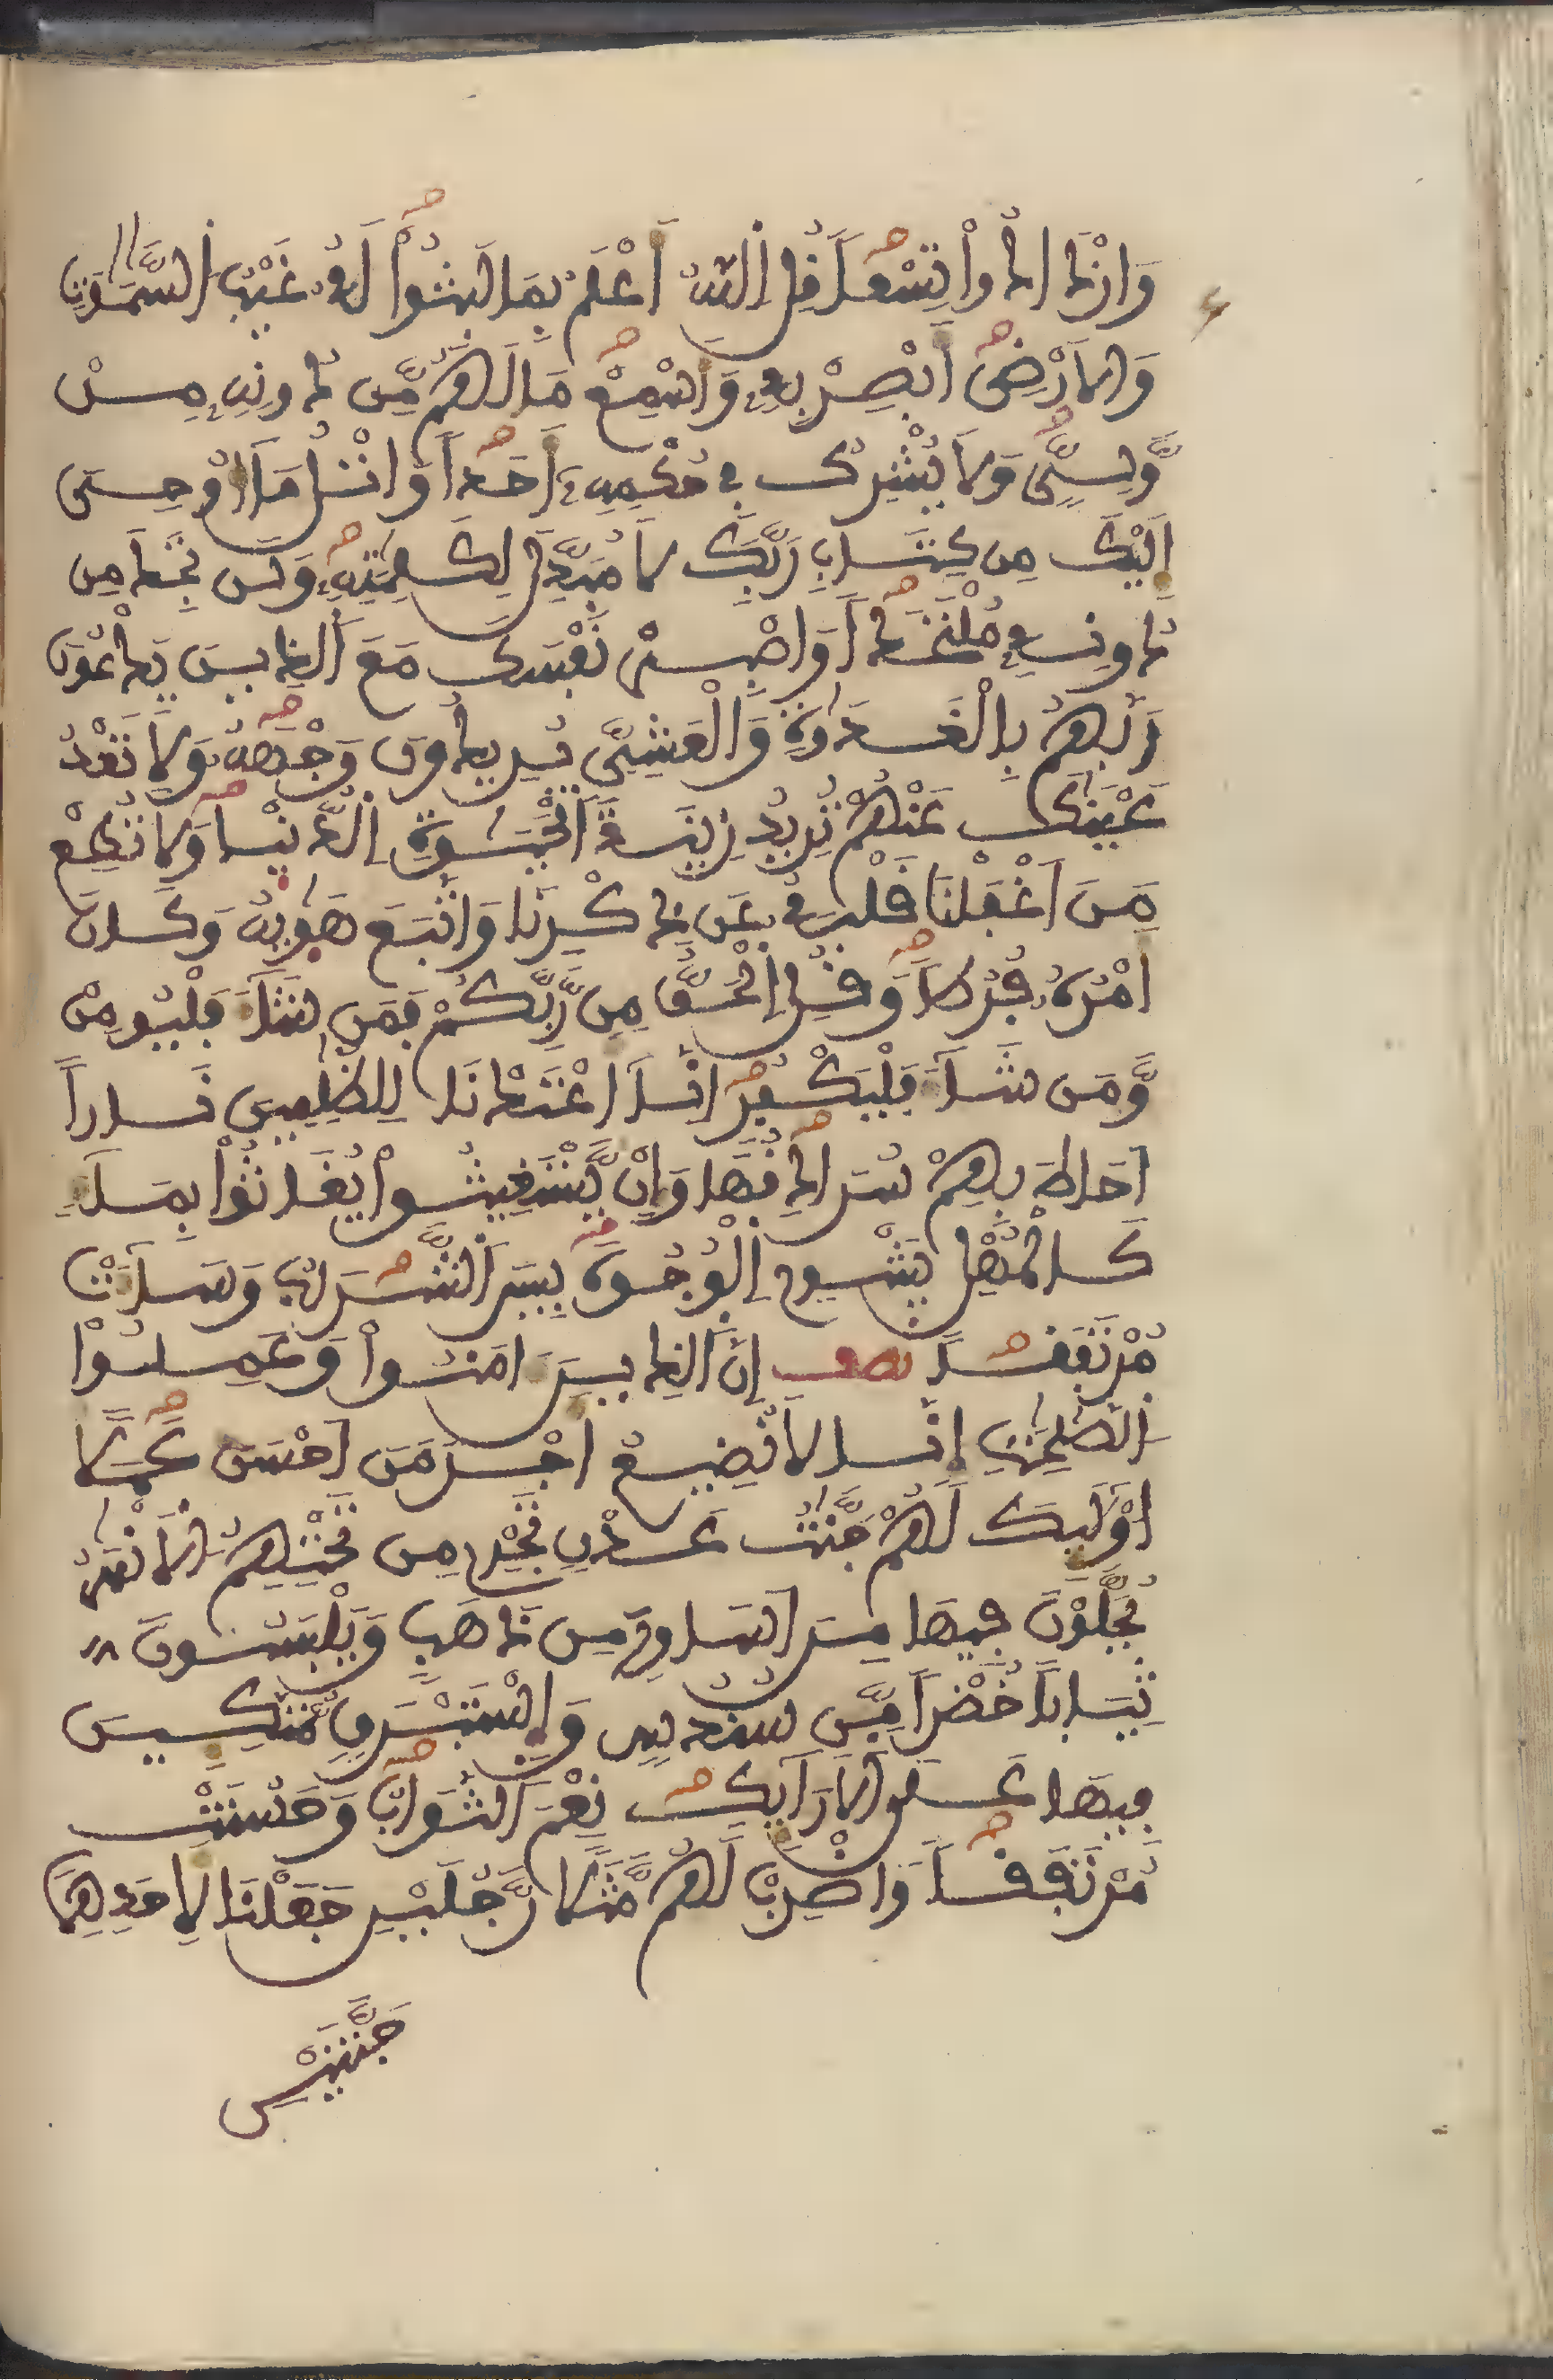 وَازْدَادُواْ تِسْعاً قُلِ اِللَّهُ أَعْلَمُ بِمَا لَبِثُواْ لَهُۥ غَيْبُ اُلسَّمَٰوَٰتِ
وَالَارْضِ أَبْصِرْ بِهِۦ وَأَسْمِعْ مَا لَهُم مِّن دُونِهِۦ مِنْ
وَّلِيّٖ وَلَا يُشْرِكُ فِے حُكْمِهِۦٓ أَحَداً وَاتْلُ مَآ أُوحِىَ
إِلَيْكَ مِن كِتَابِ رَبِّكَ لَا مُبَدِّلَ لِكَلِمَٰتِهِۦ وَلَن تَجِدَ مِن
دُونِهِۦ مُلْتَحَداً وَاصْبِرْ نَفْسَكَ مَعَ اَلذِينَ يَدْعُونَ
رَبَّهُم بِالْغَدَوٰةِ وَالْعَشِيِّ يُرِيدُونَ وَجْهَهُۥ وَلَا تَعْدُ
عَيْنَٰكَ عَنْهُمْ تُرِيدُ زِينَةَ اَلْحَيَوٰةِ اِلدُّنْيَا وَلَا تُطِعْ
مَنَ اَغْفَلْنَا قَلْبَهُۥ عَن ذِكْرِنَا وَاتَّبَعَ هَوٰيهُ وَكَانَ
أَمْرُهُۥ فُرُطاً وَقُلِ اِلْحَقُّ مِن رَّبِّكُمْ فَمَن شَآءَ فَلْيُومِن
وَّمَن شَآءَ فَلْيَكْفُرِ اِنَّآ أَعْتَدْنَا لِلظَّٰلِمِينَ نَاراً
اَحَاطَ بِهِمْ سُرَادِقُهَا وَإِنْ يَّسْتَغِيثُواْ يُغَاثُواْ بِمَآءٖ
كَالْمُهْلِ يَشْوِے اِلْوُجُوهَ بِيسَ اَلشَّرَابُ وَسَآءَتْ
مُرْتَفَقاً نصف إِنَّ اَلذِينَ ءَامَنُواْ وَعَمِلُواْ
اُلصَّٰلِحَٰتِ إِنَّا لَا نُضِيعُ أَجْرَ مَنَ اَحْسَنَ عَمَلاً
اُوْلَٰٓئِكَ لَهُمْ جَنَّٰتُ عَدْنٖ تَجْرِے مِن تَحْتِهِمُ اُلَانْهَٰرُ
يُحَلَّوْنَ فِيهَا مِنَ اَسَاوِرَ مِن ذَهَبٖ وَيَلْبَسُونَ
ثِيَاباً خُضْراً مِّن سُندُسٖ وَإِسْتَبْرَقٖ مُّتَّكِـِٕينَ
فِيهَا عَلَى اَلَارَآئِكِ نِعْمَ اَلثَّوَابُ وَحَسُنَتْ
مُرْتَفَقاً وَاضْرِبْ لَهُم مَّثَلاً رَّجُلَيْنِ جَعَلْنَا لِأَحَدِهِمَا
جَنَّتَيْنِ